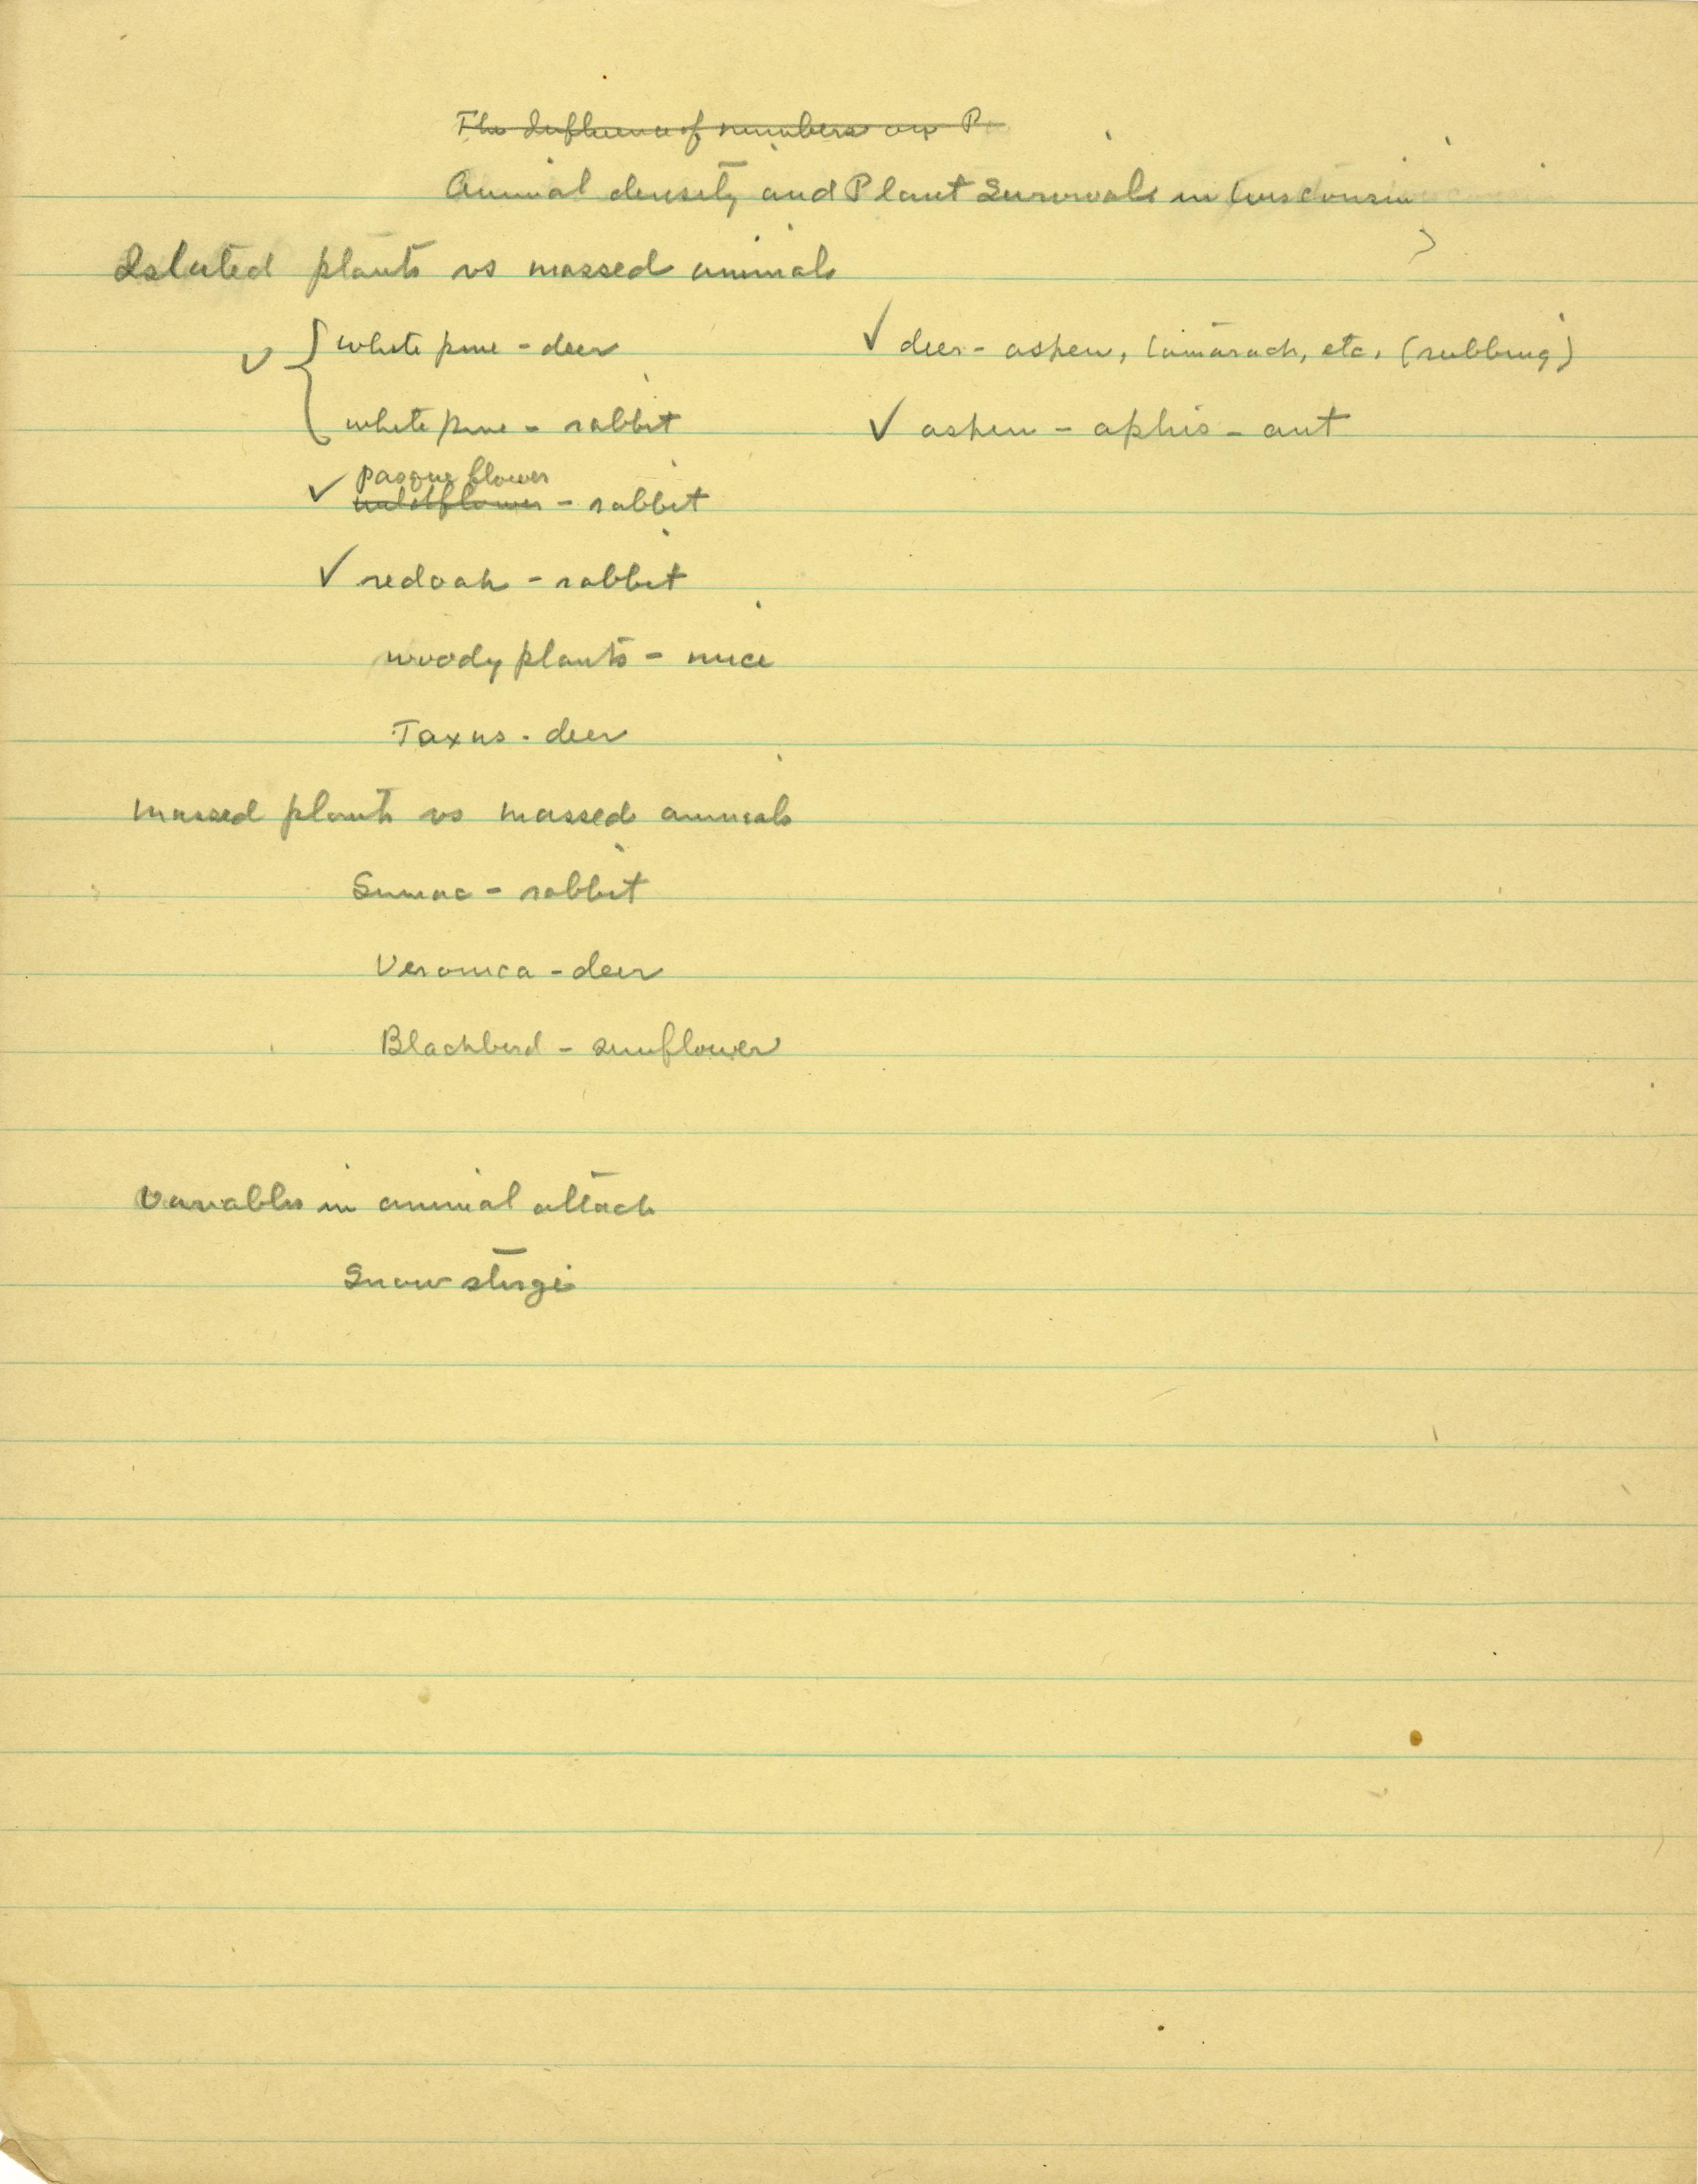 The Influence of numbers on P
Animal density and Plant Survival in Wisconsin
Isolated plants vs massed animals
white pine - deer
✓ deer - aspen, tamarack, etc. (rubbing)
✓ { white pine - rabbit
✓ aspen - aphis - ant
pasque flower
✓ wildflower - rabbit
✓ red oak - rabbit
woody plants - mice
Taxus - deer
Massed plants vs massed animals
Sumac - rabbit
Veronica - deer
Blackbird - sunflower
Variables in animal attack
Snow